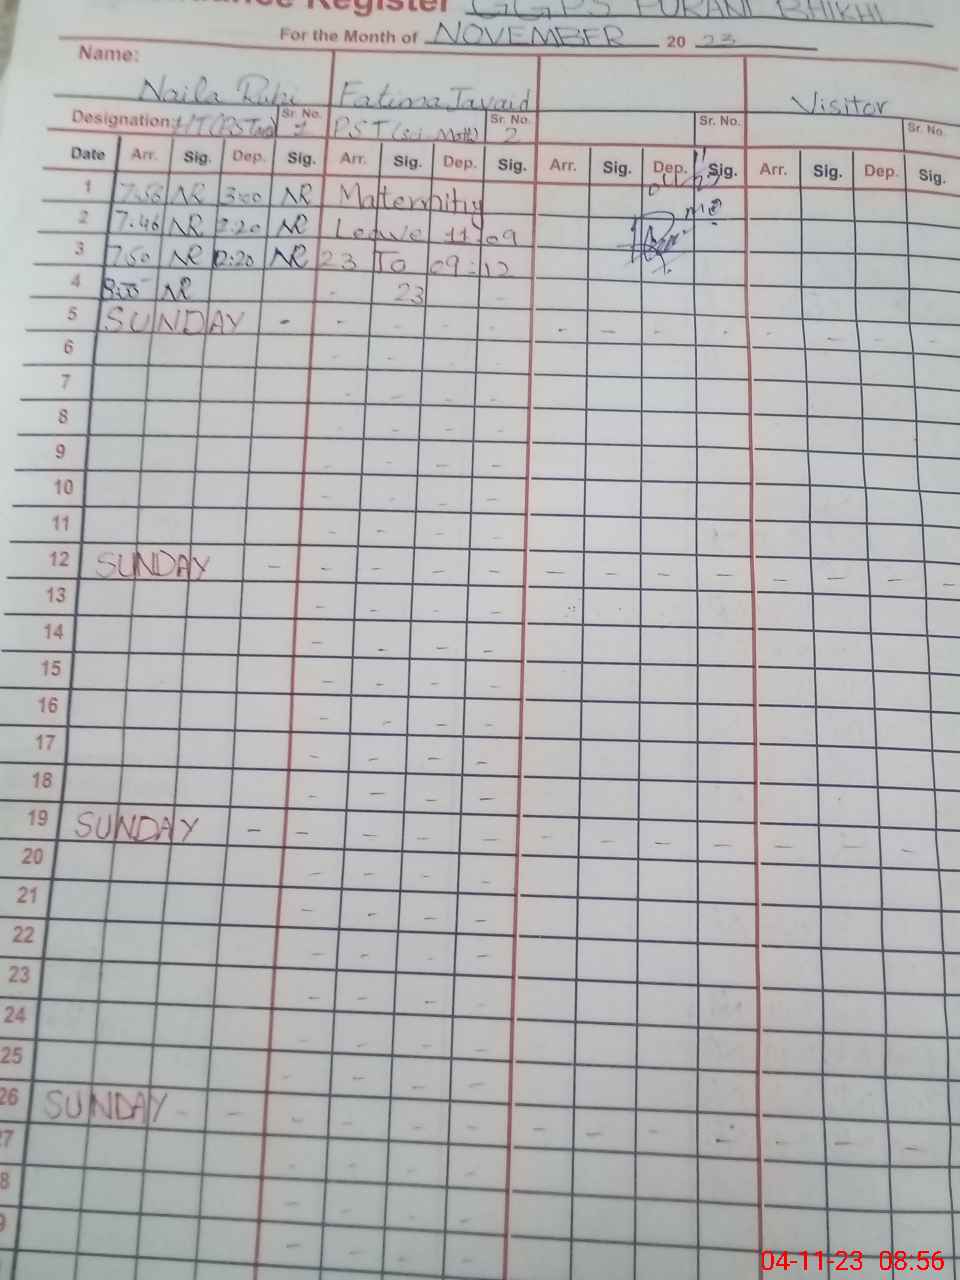 Register GGPS PURANI BHIKHI
For the Month of NOVEMBER 20 23
Name:
Naila Rubi Fatima Javaid Visitor
Designation: Sr. No. 1 PST (Sci. Math) Sr. No. 2 Sr. No. Sr. No.
Date Arr. Sig. Dep. Sig. Arr. Sig. Dep. Sig. Arr. Sig. Dep. Sig. Arr. Sig. Dep. Sig.
1 7.58 NR 3:00 NR Maternity
2 7.46 NR 2:20 NR Leave 11-09
3 7.50 NR 2:20 NR 23 To 09-12
4 8:00 NR - 23 -
5 SUNDAY - - - - - - - - - - - - -
6 - - -
7 - - -
8 - - -
9 - - -
10 - - - -
11 -
12 SUNDAY - - - - - - - - - - - - -
13 - - - -
14 - - - -
15 - - - -
16 - - - -
17 - - - -
18 - - - -
19 SUNDAY - - - - - - - - - - - -
20 - - - -
21 - - - -
22 - - -
23 - - -
24 - - - -
25 - - - -
26 SUNDAY - - - - - - - - - - - - -
7 - - - -
8 - - - -
9 - - - -
04-11-23 08:56